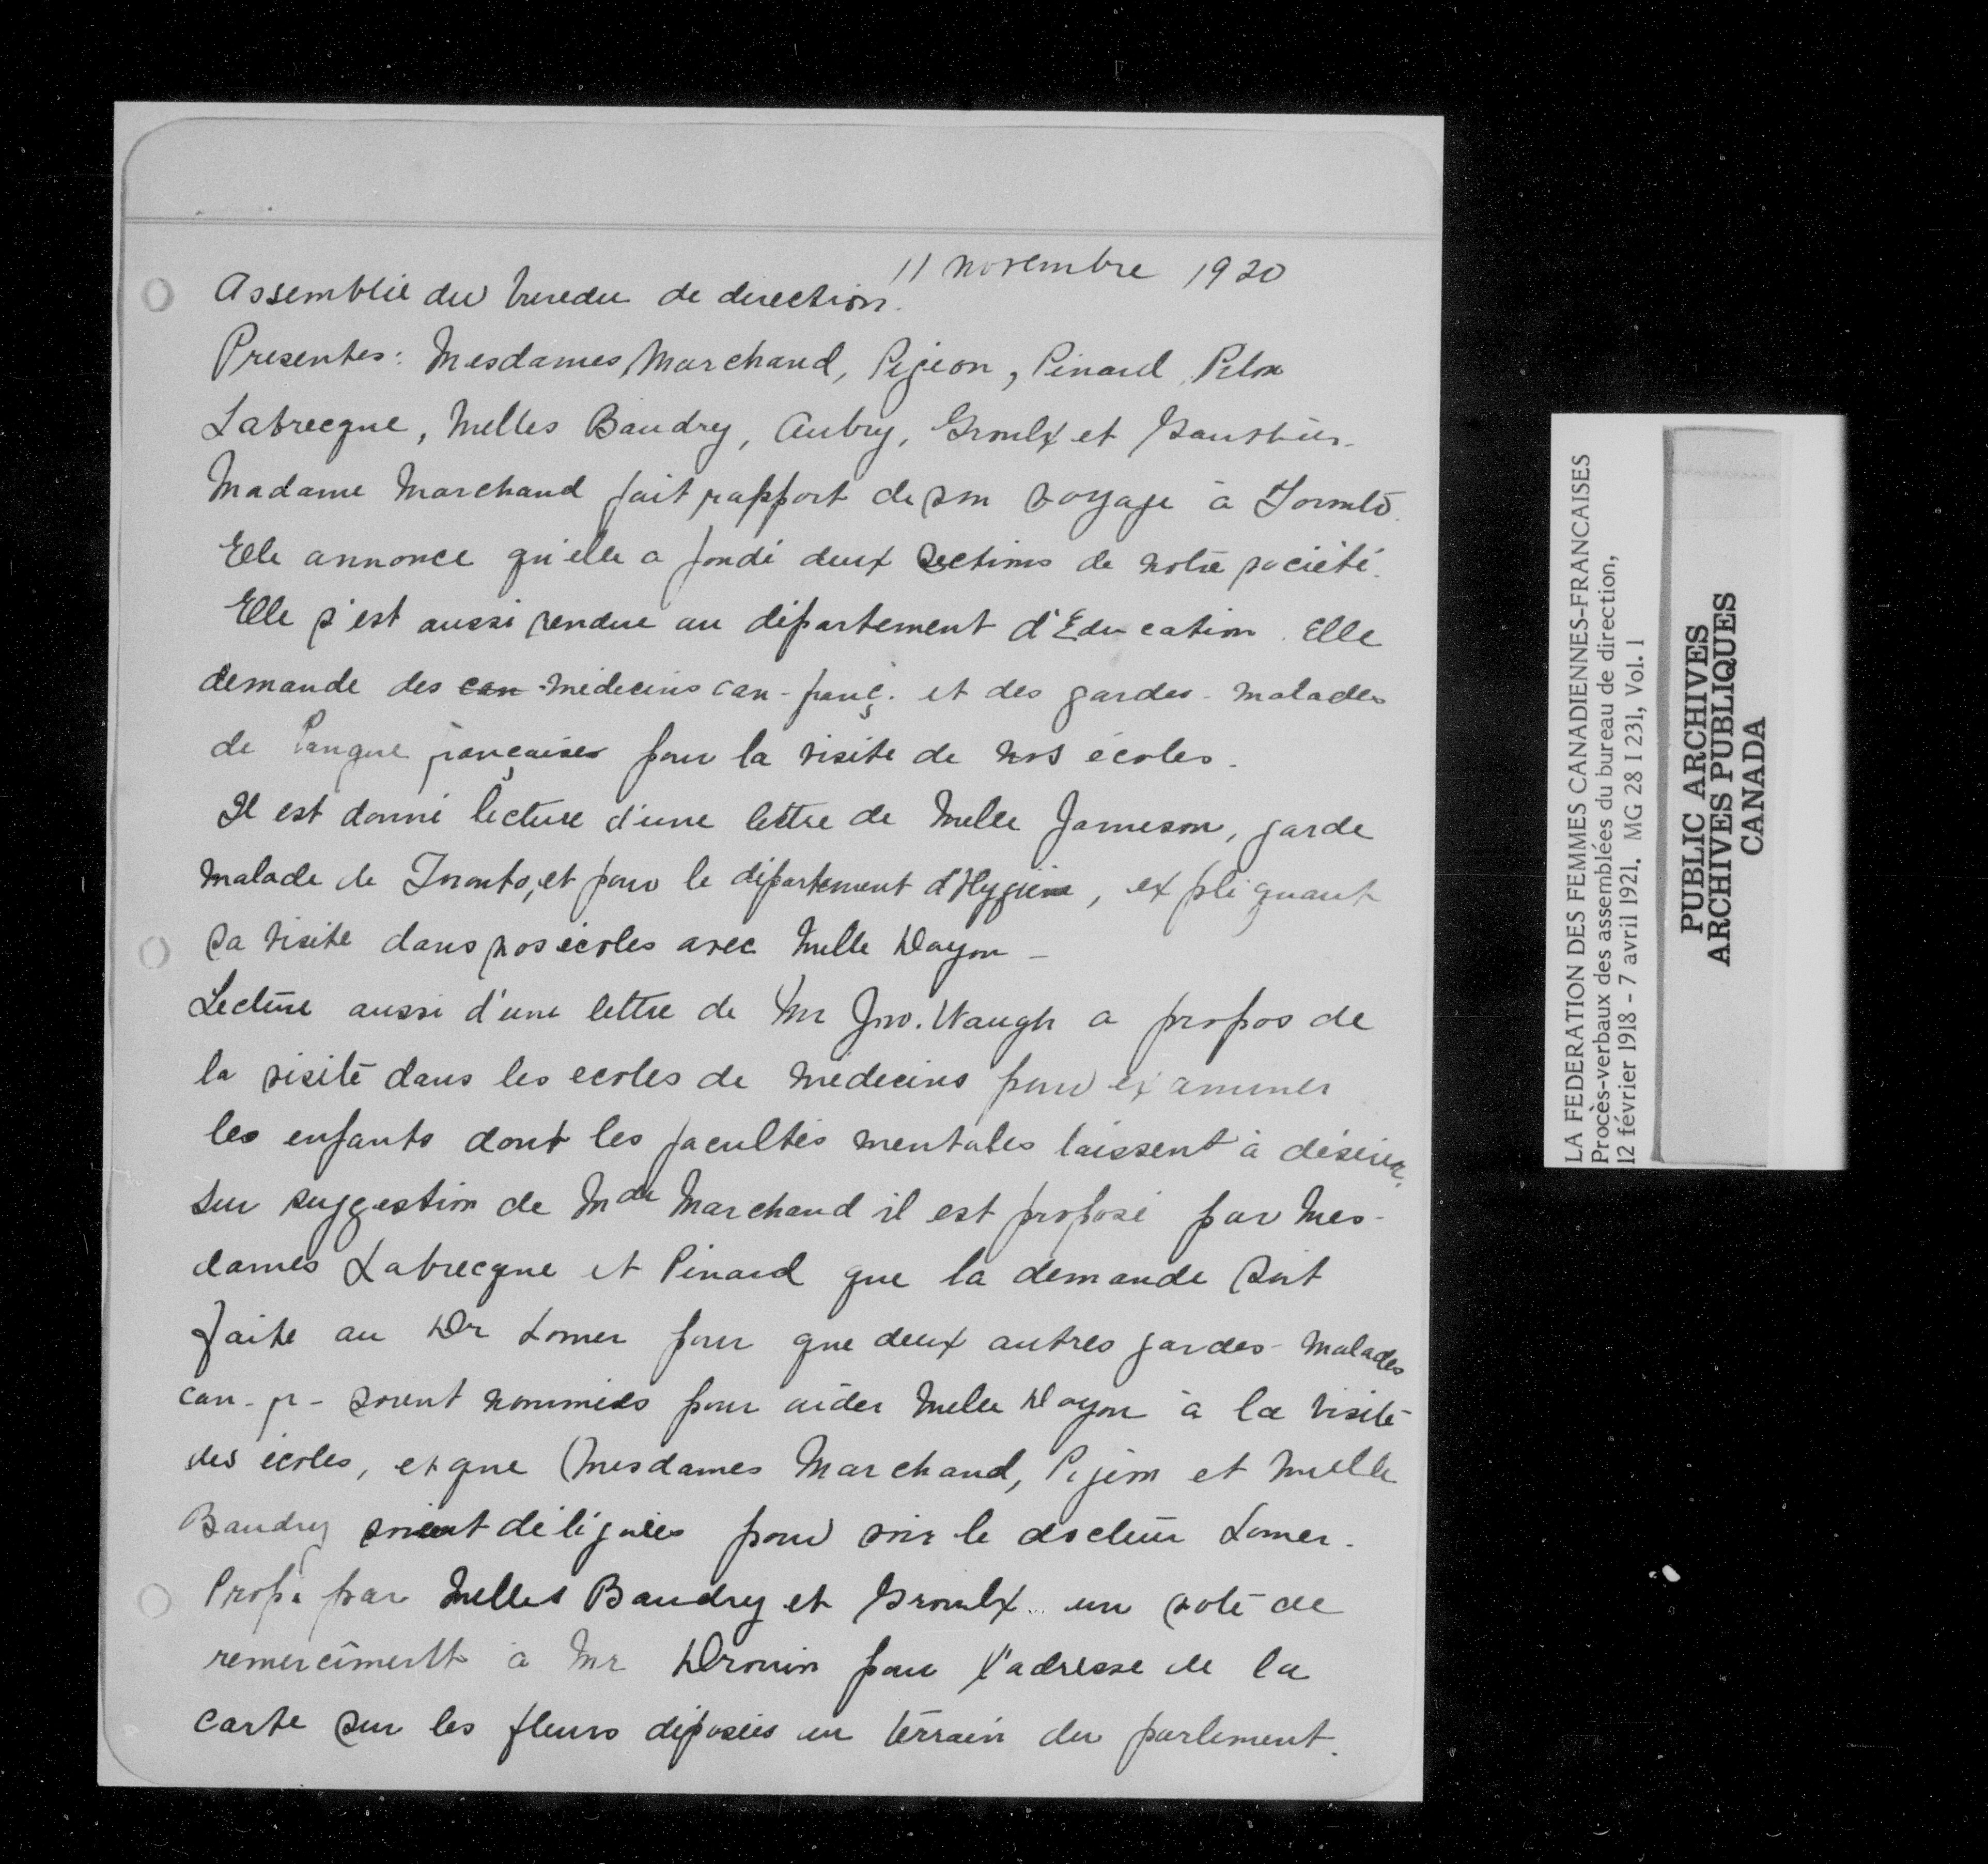 11 novembre 1920
Assemblée du bureau de direction.
Presentes: Mesdames Marchand, Pigeon, Pinard, Pilon
Labrecque, Melles Baudry, Aubry, Groulx et Gauthier.
Madame Marchand fait rapport de son voyage à Toronto.
Elle annonce qu'elle a fondé deux sections de notre société.
Elle s'est aussi rendue au département d'Education. Elle
demande des can médecins can-franç. et des gardes-malades
de langue française pour la visite de nos écoles.
Il est donné lecture d'une lettre de Melle Jameson, garde
malade de Toronto, et pour le département d'Hygiène, expliquant
sa visite dans nos écoles avec Melle Dayon -
Lecture aussi d'une lettre de Mr Jno. Waugh a propos de
la visite dans les ecoles de médecins pour examiner
les enfants dont les facultés mentales laissent à désirer.
Sur suggestion de Mde Marchand il est proposé par Mes-
dames Labrecque et Pinard que la demande soit
faite au Dr Lomer pour que deux autres gardes-malades
can-fr- soient nommées pour aider Melle Dayon à la visite
des écoles, et que Mesdames Marchand, Pigeon et Melle
Baudry soient déléguées pour voir le docteur Lomer.
Prop. par Melles Baudry et Groulx un vote de
remercîment à Mr Drouin pour l'adresse de la
carte sur les fleurs déposées au terrain du parlement.
LA FEDERATION DES FEMMES CANADIENNES-FRANCAISES
Procès-verbaux des assemblées du bureau de direction,
12 février 1918 - 7 avril 1921. MG 28 I 231, Vol. 1
PUBLIC ARCHIVES
ARCHIVES PUBLIQUES
CANADA